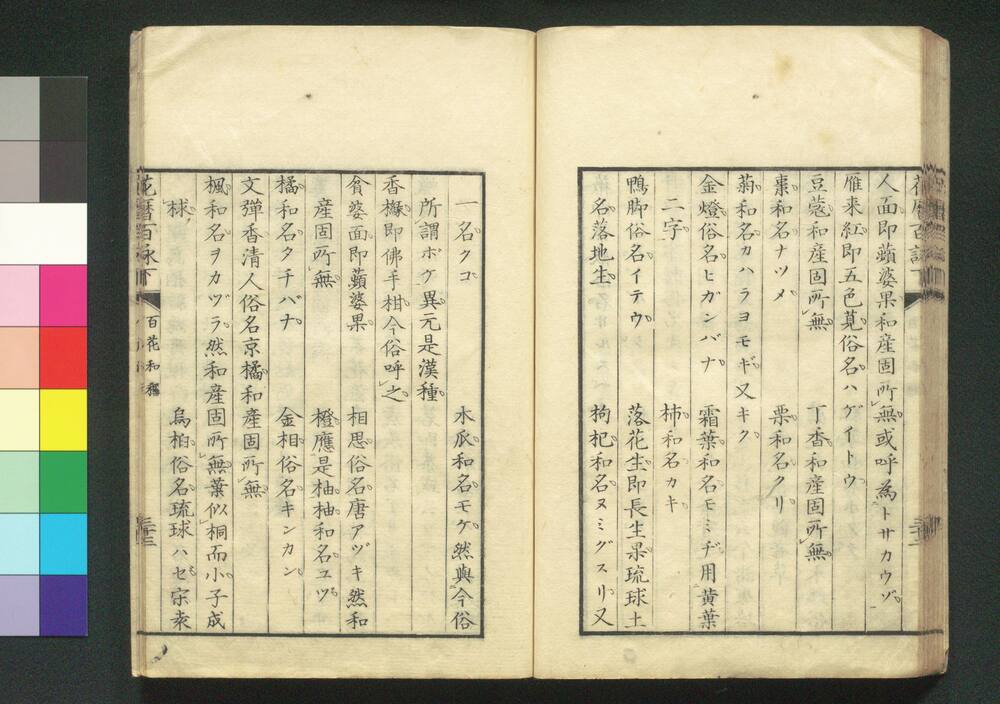 人面即蘋婆果和産固所無或呼為トサカウゾ
雁来紅即五色莧俗名ハゲイトウ
豆蔻和産固所無 丁香和産固所無
棗和名ナツメ 栗和名クリ
菊和名カハラヨモギ又キク
金燈俗名ヒガンバナ 霜葉和名モミヂ用黄葉
二字 柿和名カキ
鴨脚俗名イテウ 落花生即長生果琉球土
名落地生 枸杞和名ヌミグスリ又
一名クコ 木瓜和名モケ然與今俗
所謂ボケ異元是漢種
香櫞即佛手柑今俗呼之
貧婆面即蘋婆果 相思俗名唐アヅキ然和
産固所無 橙應是柚柚和名ユツ
橘和名タチバナ 金相俗名キンカン
文彈香清人俗名京橘和産固所無
楓和名ヲカヅラ然和産固所無葉似桐而小子成
梂 烏桕俗名琉球ハセ宗奭
花暦百詠下 百花和稱